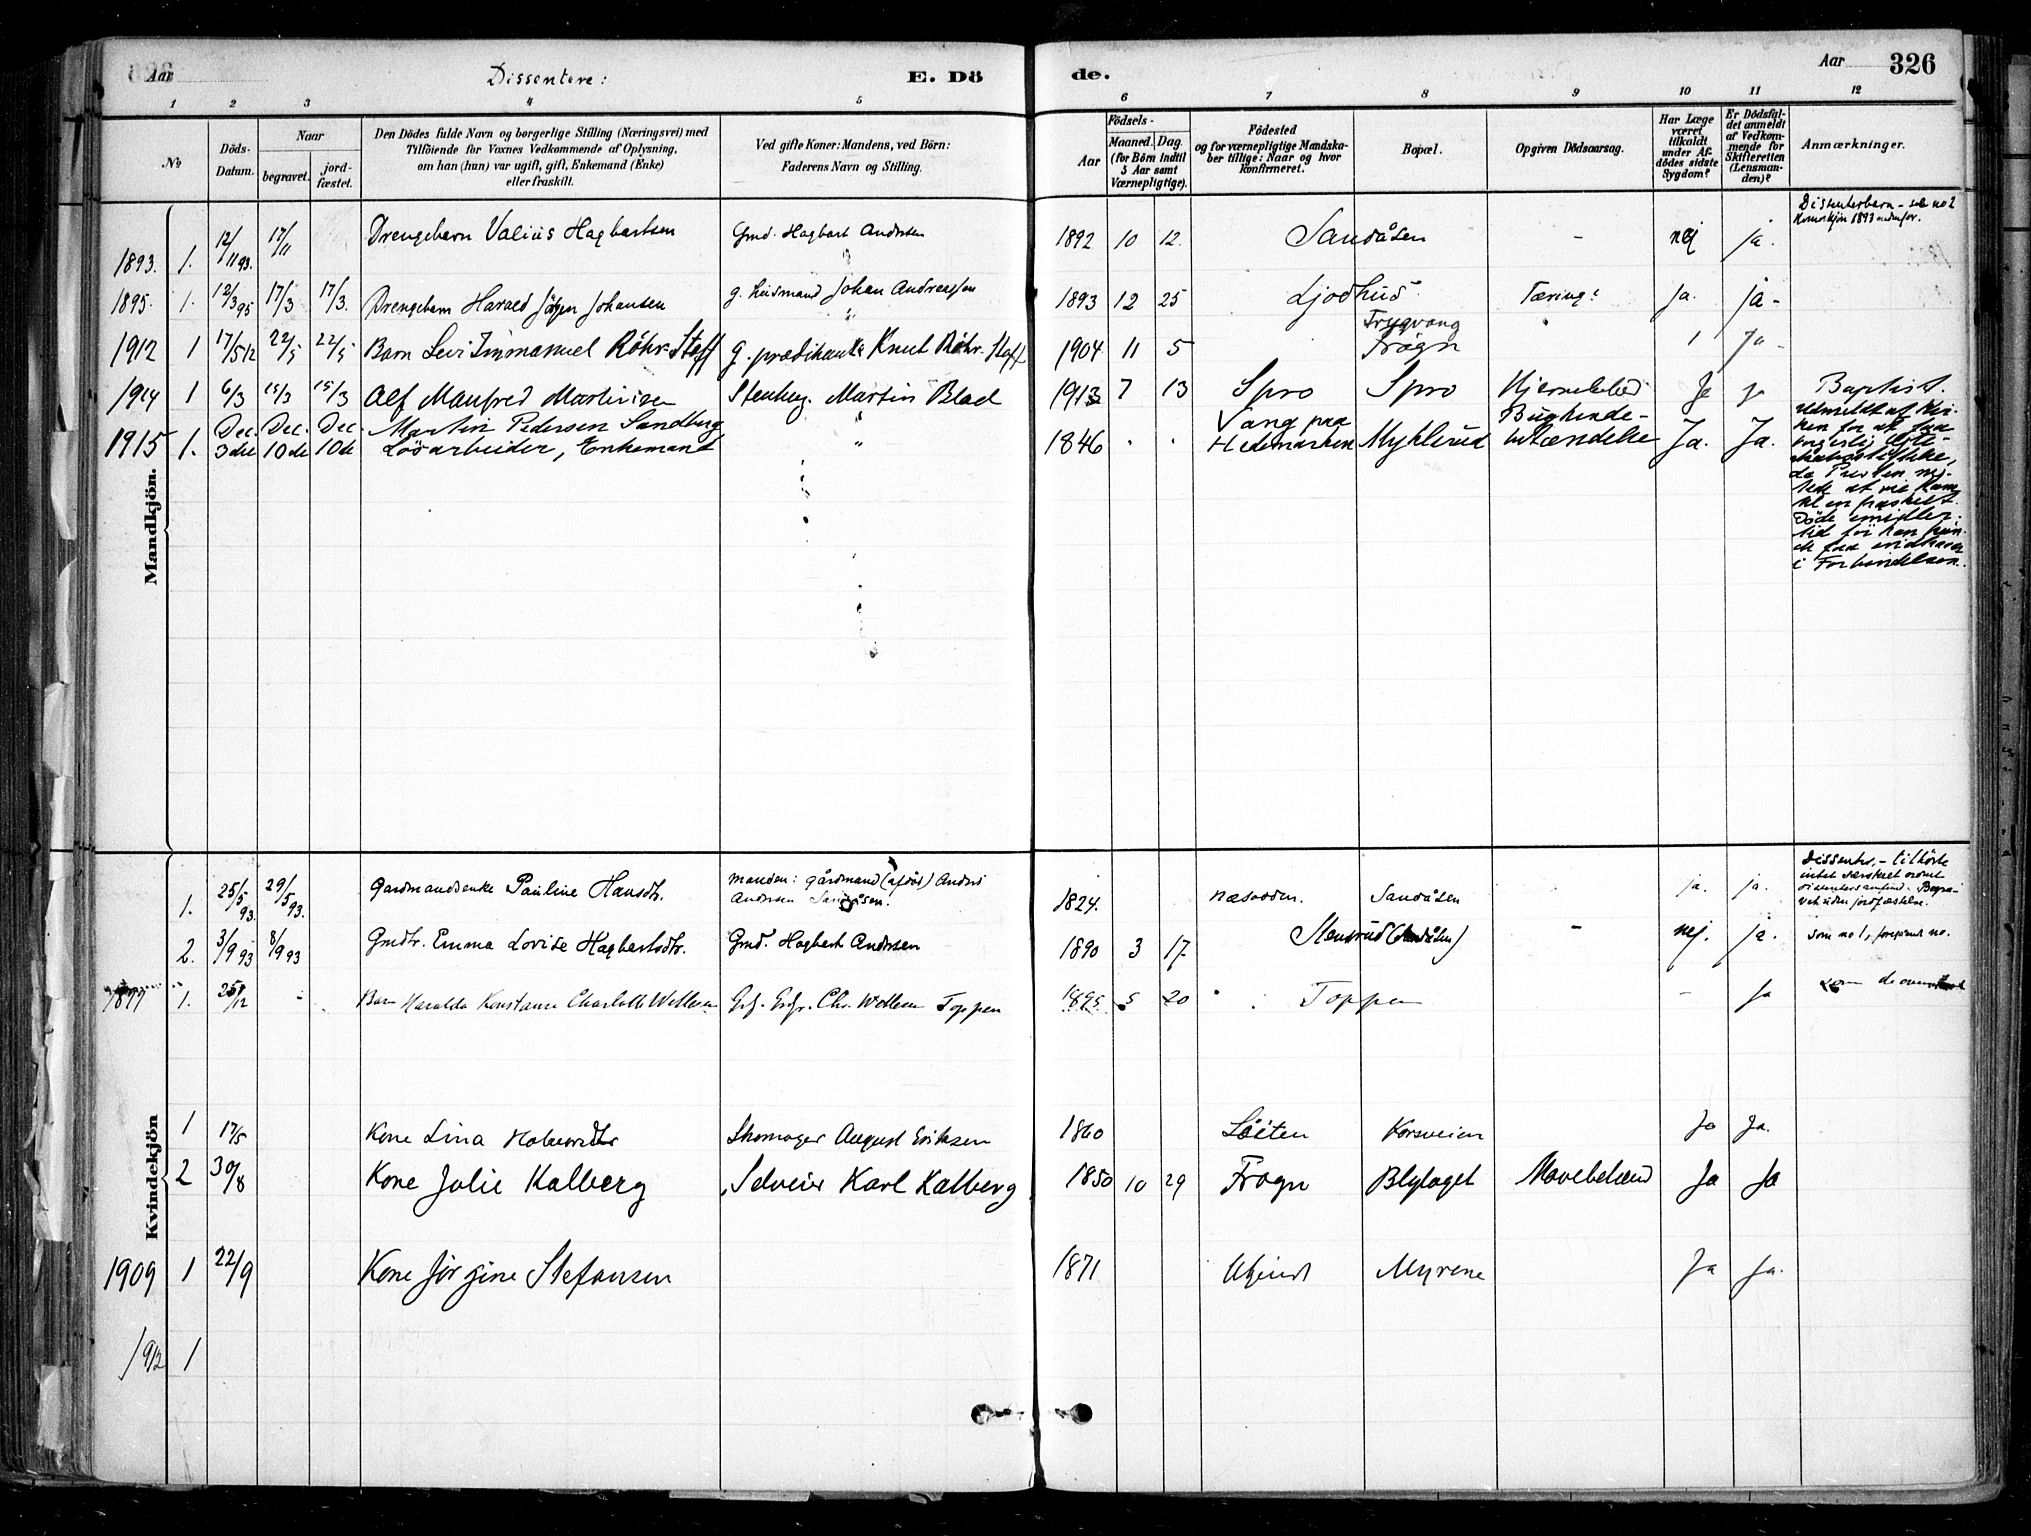 Aar
Dissentere:
E. Dö
de.
Aar 326
1 2 3 4 5 6 7 8 9 10 11 12
No
Döds-Datum.
Naar
begravet.
jord-fæstet.
Den Dödes fulde Navn og borgerlige Stilling (Næringsvei) med
Tilföiende for Voxnes Vedkommende af Oplysning,
om han (hun) var ugift, gift, Enkemand (Enke)
eller fraskilt.
Ved gifte Koner: Mandens, ved Börn:
Faderens Navn og Stilling.
Födsels-
Aar
Maaned. Dag.
(for Börn indtil
5 Aar samt
Værnepligtige).
Födested
og for værnepligtige Mandska-
ber tillige: Naar og hvor
konfirmeret.
Bopæl.
Opgiven Dödsaarsag.
Har Læge
været
tilkaldt
under Af-
dödes sidste
Sygdom?
Er Dödsfal-
det anmeldt
af Vedkom-
mende for
Skifteretten
(Lensman-
den)?
Anmærkninger.
Mandkjön.
1893. 1. 12/11 93. 17/11 Drengebarn Valius Hagbartsen Gmd. Hagbart Andersen 1892 10 12. Sandåsen - nej ja. Dissenterbarn - se no 2
Kvindekjön 1893 nedenfor.
1895. 1. 12/3 95 17/3 17/3. Drengebarn Harald Jörgen Johansen g. Husmand Johan Andreassen 1893 12 25 Ljodhus Tæring? Ja. ja-
1912 1 17/5 12 22/5 22/5 Barn Levi Immanuel Röhr-Staff g. prædikant Knut Röhr-Staff 1904 11 5 Trygvang
Frogn 1 Ja-
1914 1 6/3 15/3 15/3 Alf Manfred Martinsen Stenhug. Martin Blad 1913 7 13 Spro Spro Hjernebetænd Ja ja Baptist.
1915 1. Dec. 3die Dec. 10de Dec. 10de Martin Pedersen Sandberg
Lösarbeider, Enkemand " 1846 " " Vang paa
Hedemarken Myklerud Bughinde-
betændelse Ja. Ja. Udmeldt af Kir-
ken for at faa
borgerlig
da Presten
at vie ham
til en fraskilt.
Döde imidler-
tid för han
i Forbindelsen.
Kvindekjön
1. 25/5 93. 29/5 93. Gardmandsenke Pauline Hansdtr. Manden: gårdmand (afdöd) Anders
Andersen Sandåsen. 1824. Næsodden. Sandåsen ja. ja. Dissenter, - tilhörte
intet særskilt ordnet
dissentersamfund. Begra-
vet uden jordfæstelse.
2. 3/9 93 8/9 93 Gmdtr. Emma Lovise Hagbartsdtr. Gmd. Hagbart Andersen 1890 3 17. Stensrud (Sandåsen) - nej. ja. Som no 1, foregående no.
1897 1. 25/12 - Barn Haralda Konstance Charlotte Wettersen Chr. Toppen 1895 5 20 " Toppen - Ja Som de
1 17/5 Kone Lina Halvorsdtr Skomager August Eriksen 1860 Löiten Korsveien Ja Ja.
2 30/8 Kone Julie Kalberg Selveier Karl Kalberg 1850 10 29 Frogn Blylaget Mavebetænd Ja Ja
1909 1 22/9 Kone Jörgine Stefansen 1871 Ukjendt Myrene Ja Ja.
1912 1